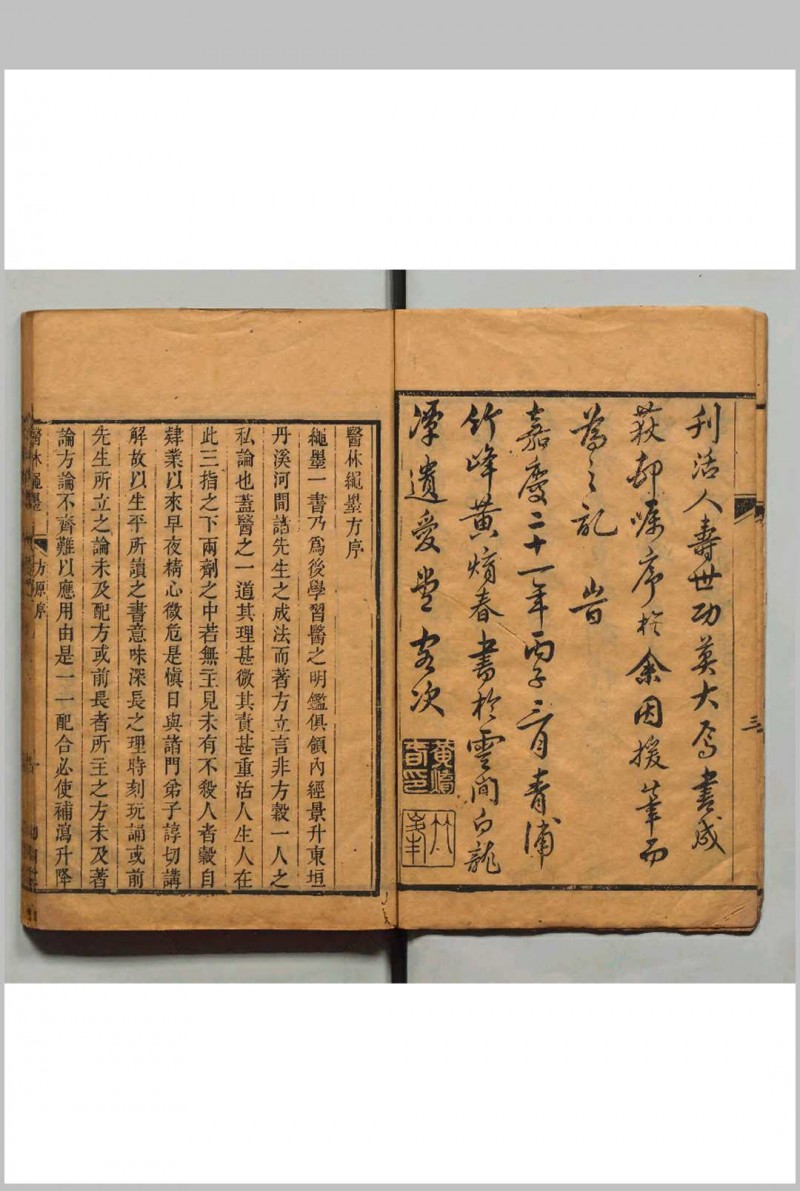 刋活人壽世功莫大焉書成
荻邨囑序於余因援筆而
為之記 旹
嘉慶二十一年丙子三月青浦
竹峰黃堉春書於雲間白龍
潭遺愛堂客次
三
醫林繩墨方序
繩墨一書乃爲後學習醫之明鑑俱領內經景升東垣
丹溪河間諸先生之成法而著方立言非方穀一人之
私論也蓋醫之一道其理甚微其責甚重活人生人在
此三指之下兩劑之中若無主見未有不殺人者穀自
肄業以來早夜精心微危是愼日與諸門弟子諄切講
解故以生平所讀之書意味深長之理時刻玩誦或前
先生所立之論未及配方或前長者所主之方未及著
論方論不齊難以應用由是一一配合必使補瀉升降
醫林繩墨
方原序